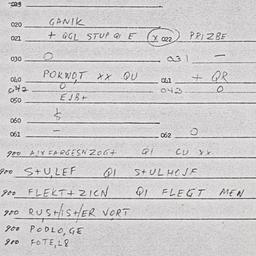 020 GANIK
021 + GGL STUP QI E X 022 PRIZBE
030 0 031 —
040 POKWDT XX QU 041 + QR
042 0 043 0
050 EJB+
060
061 — 062 0
900 QI CU XX
900 S+U,LEF QI S+ULHCJF
900 FLEKT+ZICN QI FLEGT MEN
900 RUS+IS+ER VORT
900 PODLO,GE
900 FOTE,L8